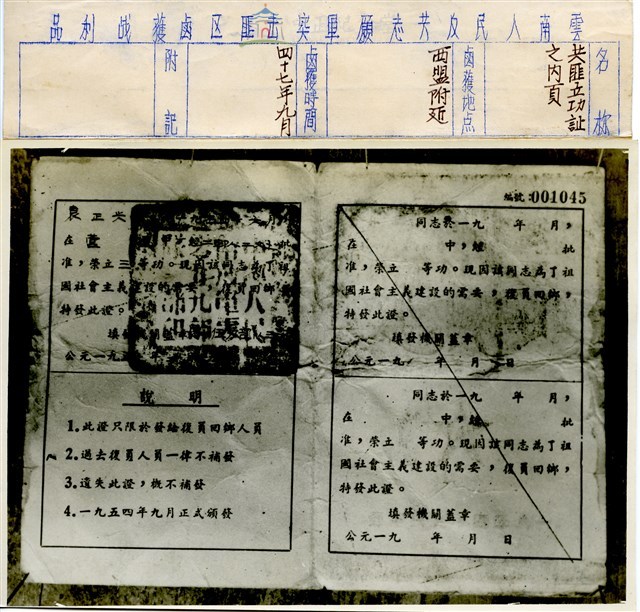 雲南人民反共志願軍突击匪区鹵獲战利品
名称
共匪立功証
之内頁
鹵獲地点
西盟附近
鹵獲時間
四十七年九月
附記
編號:001045
在 批
准,榮立三等功。現因該同志為了祖
國社會主義建設的需要,復員回鄉,
特發此證。
填發
公元一九五
說明
1.此證只限於發給復員回鄉人員
2.過去復員人員一律不補發
3.遺失此證,概不補發
4.一九五四年九月正式頒發
同志於一九 年 月,
在 中,經 批
准,榮立 等功。現因該同志為了祖
國社會主義建設的需要,復員回鄉,
特發此證。
填發機關蓋章
公元一九 年 月 日
同志於一九 年 月,
在 中,經 批
准,榮立 等功。現因該同志為了祖
國社會主義建設的需要,復員回鄉,
特發此證。
填發機關蓋章
公元一九 年 月 日